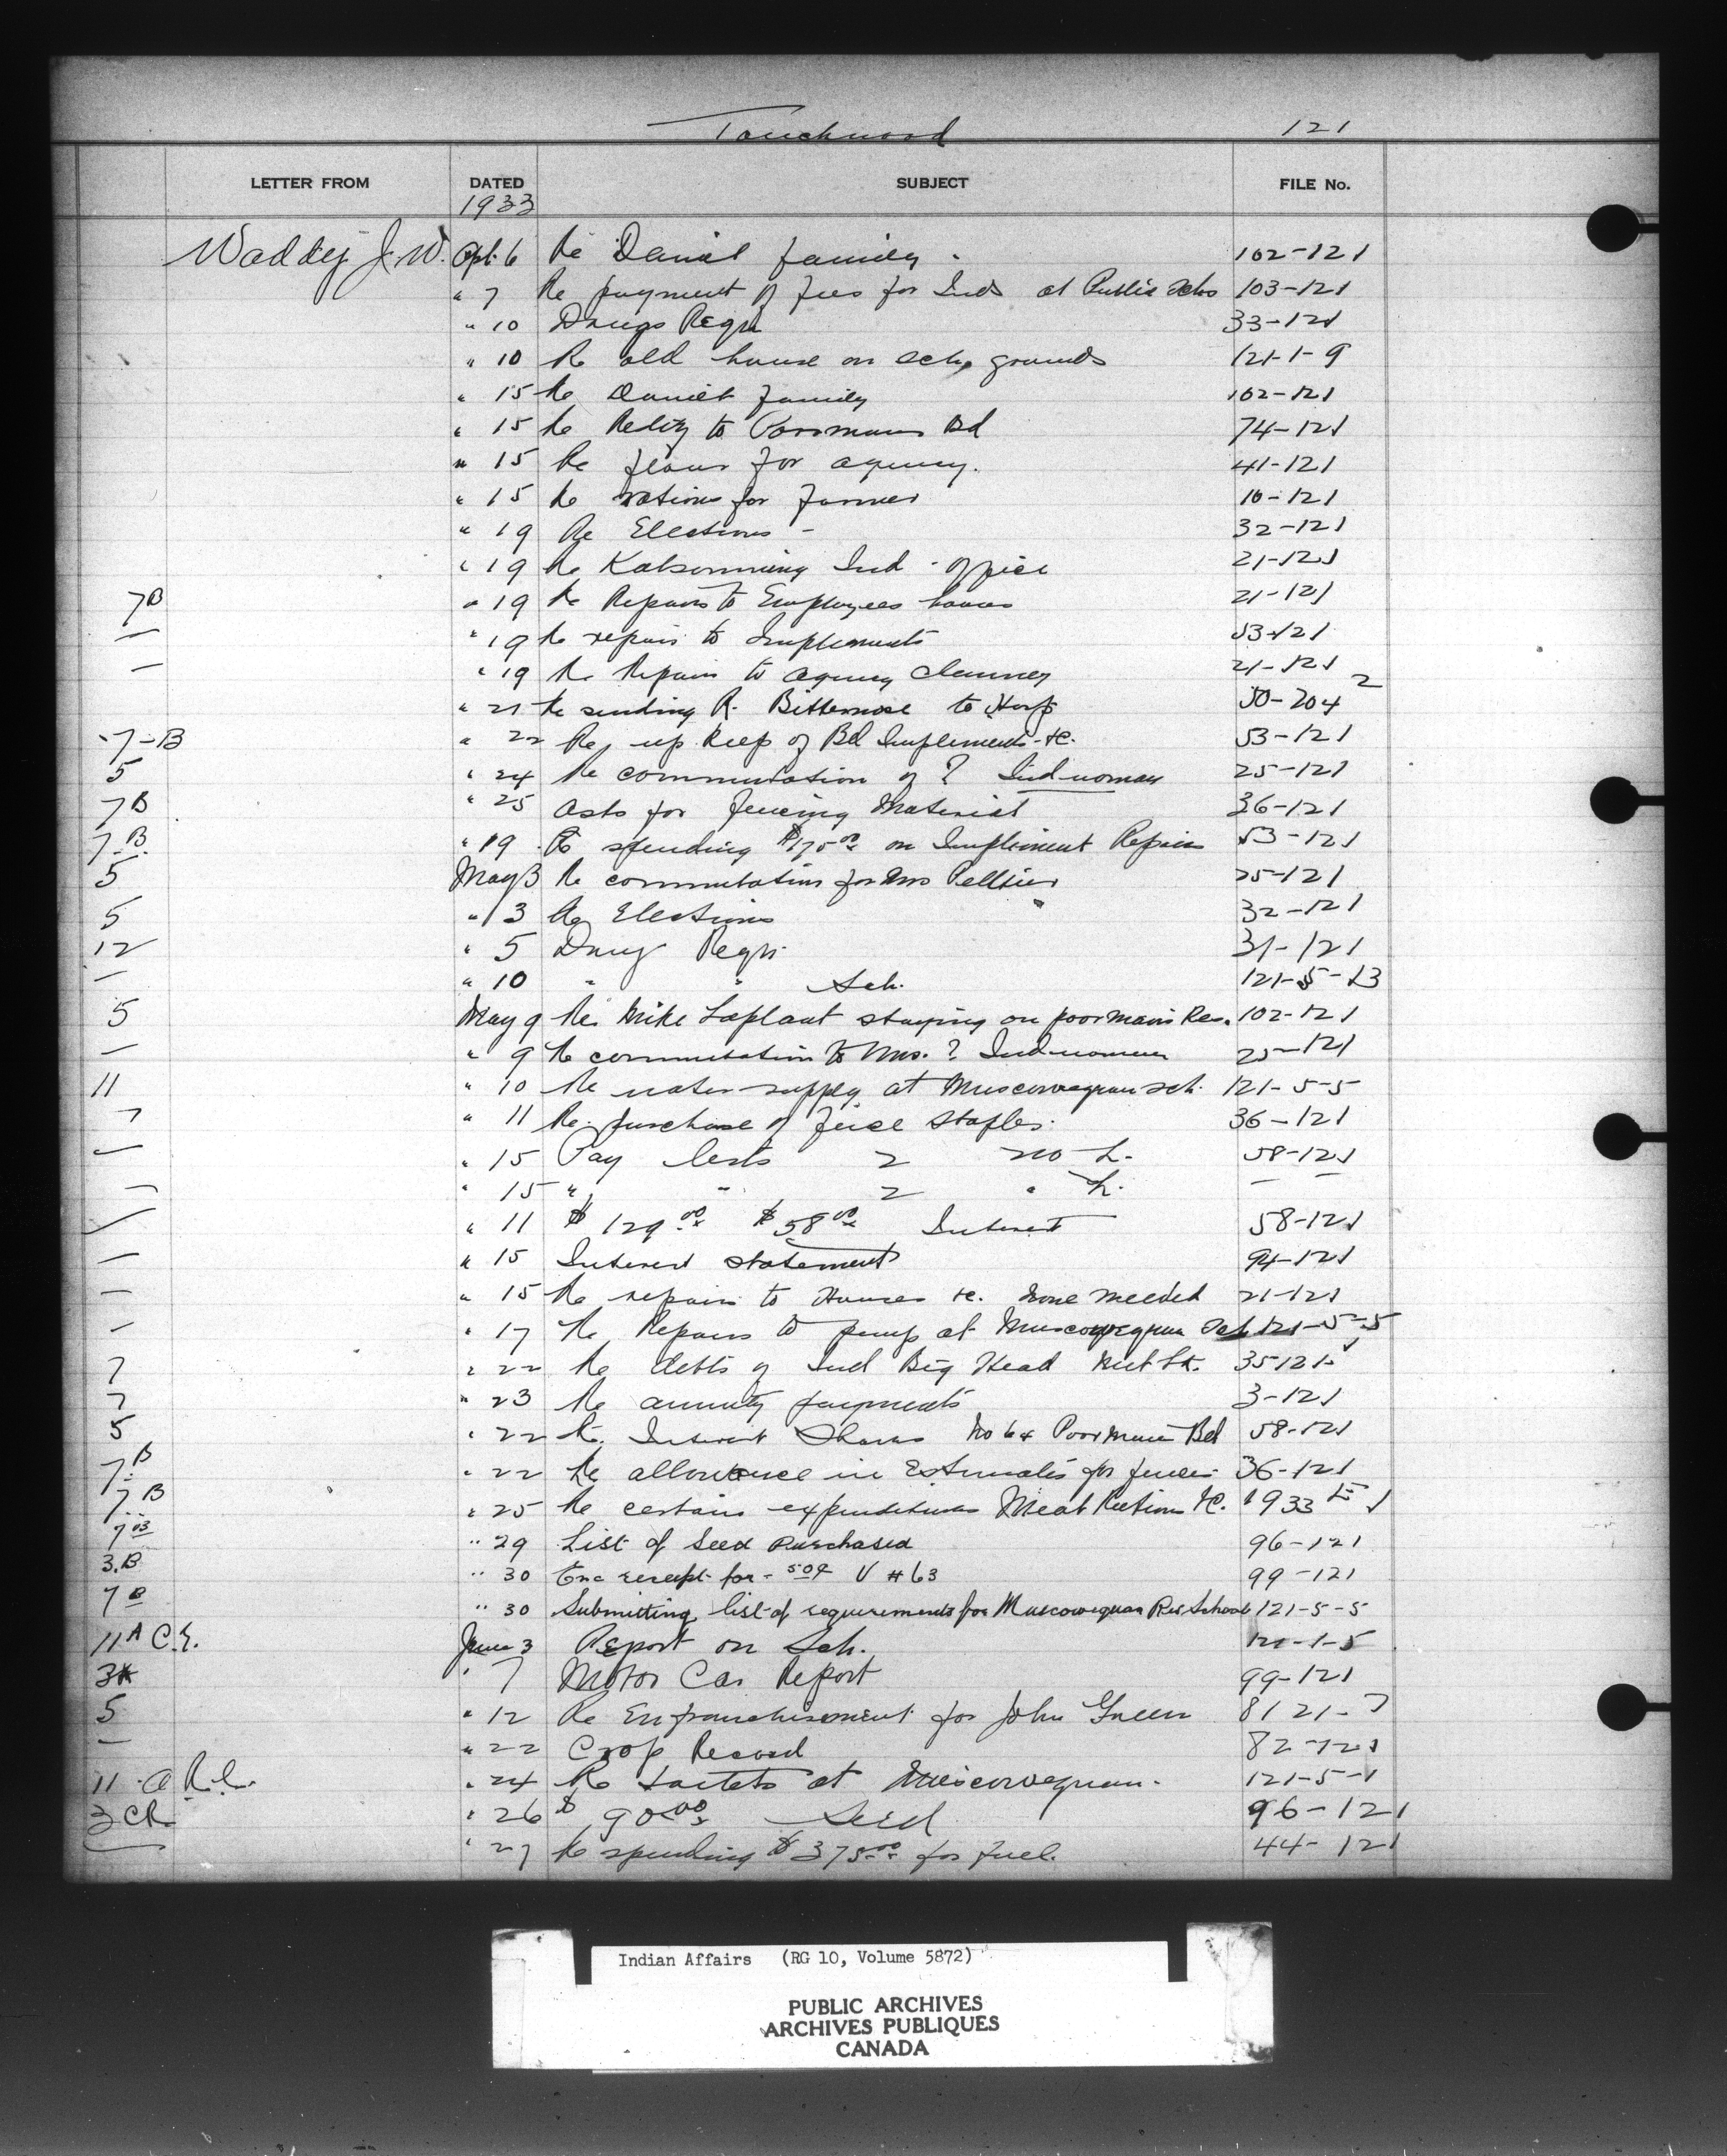 Touchwood 121
LETTER FROM DATED SUBJECT FILE No.
1933
Waddy J.W. Apl. 6 Re Daniel family. 102-121
" 7 Re payment of fees for Inds at Public Schs 103-121
" 10 Drugs Reqn 33-121
" 10 Re old house on sch, grounds 121-1-9
" 15 Re Daniel family 102-121
" 15 Re Relig to Poormans Bd 74-121
" 15 Re flour for agency. 41-121
" 15 Re rations for farmer 10-121
" 19 Re Elections - 32-121
" 19 Re Kalsomining Ind. office 21-121
7B " 19 Re Repairs to Employees houses 21-121
— " 19 Re repairs to Implements 53-121
— " 19 Re Repairs to agency chimney 21-121
" 21 Re sending R. Bitternose to Hosp 50-204 2
7-B " 22 Re, up keep of Bd Implements &c. 53-121
5 " 24 Re commutation of ? Ind woman 25-121
7B " 25 asks for fencing Material 36-121
7.B. " 19 Re spending $175.00 on Implement Repairs 53-121
5 May 3 Re commutation for Mrs Pelltier 25-121
5 " 3 Re Elections 32-121
12 " 5 Drug Reqn. 31-121
— " 10 " " Sch. 121-5-13
5 May 9 Re. Mike Laplant staying on poormans Res. 102-121
— " 9 Re commutation to Mrs. ? Ind women 25-121
11 " 10 Re water supply at Muscowequan sch. 121-5-5
7 " 11 Re. purchase of fence staples. 36-121
— " 15 Pay lists 2 no L. 58-121
— " 15 " " 2 " L. — —
" 11 $129.00 $58.00 Interest 58-121
— " 15 Interest statement 94-121
— " 15 Re repairs to Houses &c. none needed 21-121
— " 17 Re Repairs to pump at Muscowequan Sch 121-5-5
7 " 22 Re debts of Ind Big Head 35121-
7 " 23 Re annuity payments 3-121
5 " 22 Re. Interest Shares No 64 Poormans Bd 58-121
7.B " 22 Re allowance in Estimates for fences 36-121
7.B " 25 Re certain expenditures Meat Rations &c. 1933
7 " 29 List of Seed Purchased 96-121
3.B " 30 Enc receipt for - 50¢ V #63 99-121
7B " 30 Submitting list of requirements for Muscowequan Res School 121-5-5
11A C.E. June 3 Report on Sch. 121-1-5
" 7 Motor Car Report 99-121
5 " 12 Re Enfranchisement for John Green 8121-7
— " 22 Crop Record 82-121
11 a R.C. " 24 Re toilets at Muscowequan. 121-5-1
3 CR " 26 $90.00 Seed 96-121
— " 27 Re spending $375.00 for fuel. 44-121
Indian Affairs (RG 10, Volume 5872)
PUBLIC ARCHIVES
ARCHIVES PUBLIQUES
CANADA